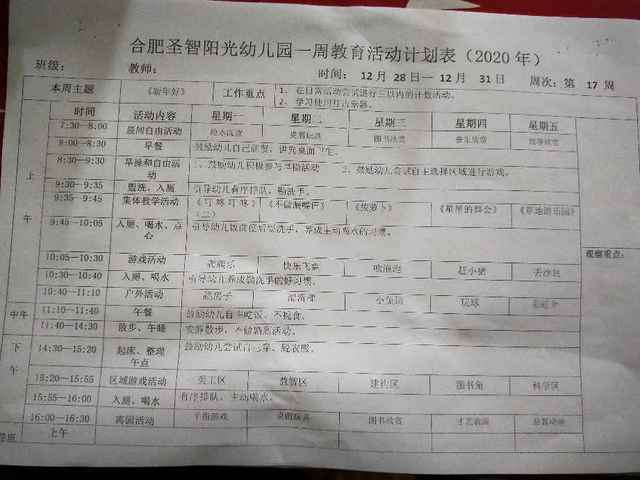 合肥圣智阳光幼儿园一周教育活动计划表（2020年）
班级： 教师： 时间： 12月 28日—12月 31日 周次：第 17周
本周主题 《新年好》 工作重点 1、在日常活动尝试进行三以内的计数活动。
2、学习使用打击乐器。
时间 活动内容 星期一 星期二 星期三 星期四 星期五
7:30—8:00 晨间自由活动 桌面玩具 图书欣赏 音乐欣赏
8:00—8:30 早餐 鼓励幼儿自己进餐，讲究桌面卫生。
8:30—9:30 早操和自由活动 1、鼓励幼儿积极参与早操活动 2、鼓励幼儿尝试自主选择区域进行游戏。
上午
9:30—9:35 盥洗、入厕 引导幼儿有序排队、勤洗手。
9:35—9:45 集体教学活动 《叮咚叮咚》（二） 《不偷懒嘴仔》 《拔萝卜》 《星星的群会》 《草地游乐园》
9:45—10:05 入厕、喝水、点心 引导幼儿饭前便后要洗手，养成主动喝水的习惯。
观察重点：
10:05—10:30 游戏活动 快乐飞奔 吹泡泡 赶小猪 丢沙包
10:30—10:40 入厕、喝水 引导幼儿养成勤洗手的好习惯。
10:40—11:10 户外活动 跳房子 玩球
中午 11:10—11:40 午餐 鼓励幼儿自主吃饭、不挑食。
11:40—14:30 散步、午睡 安静散步，不做剧烈活动。
下午 14:30—15:20 起床、整理午点 鼓励幼儿尝试自己穿、脱衣服。
15:20—15:55 区域游戏活动 美工区 益智区 建构区 图书角 科学区
15:55—16:00 入厕、喝水 有序排队，主动喝水。
16:00—16:30 离园活动 手指游戏 桌面玩具 图书欣赏 才艺表演
上午